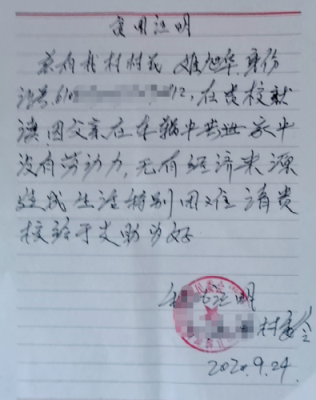 贫困证明
兹有我村村民 姬旭华,身份
证号610 12,在贵校就
读,因父亲在车祸中去世,家中
没有劳动力,无有经济来源
致使生活特别困难,请贵
校给予支助为好
证明
村委会
2020.9.24.